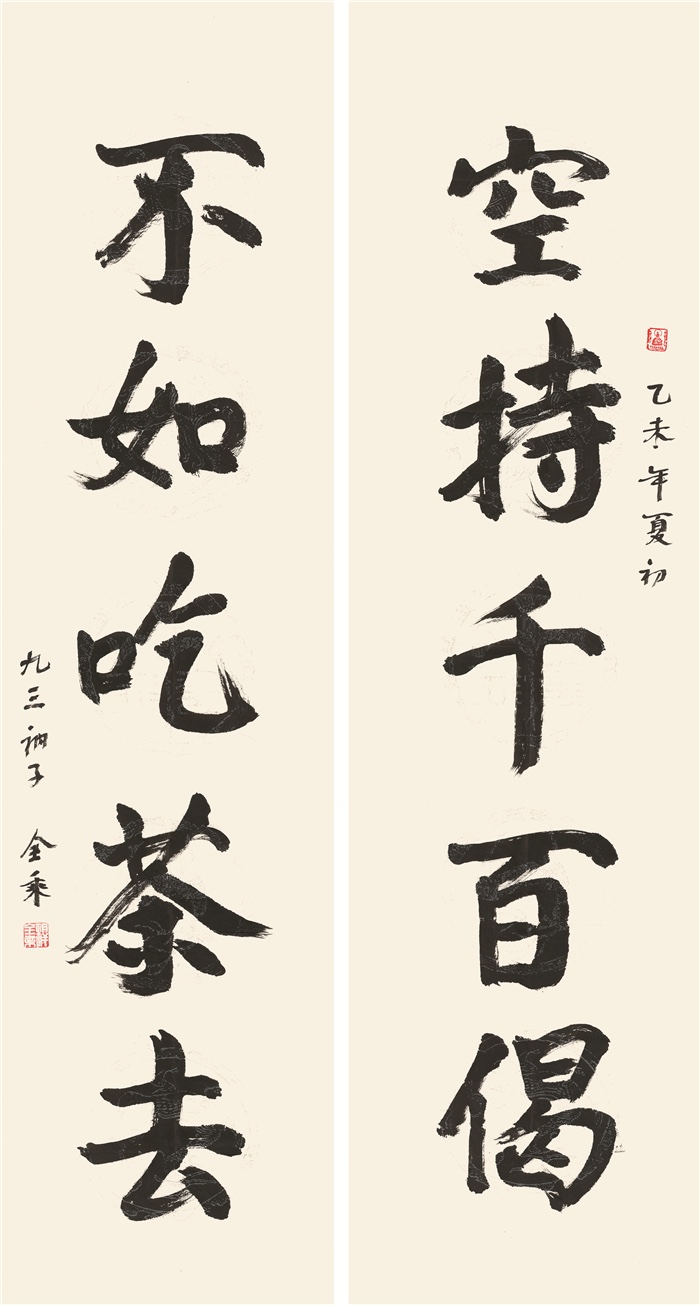 乙未年夏初
空持千百偈
不如吃茶去
九三衲子 全乘